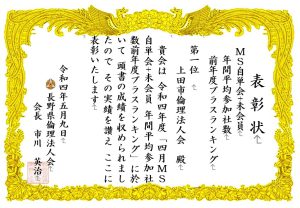 表彰状
ＭＳ自単会＋未会員
年間平均参加社数
前年度プラスランキング
第一位
上田市倫理法人会 殿
貴会は 令和四年度「四月ＭＳ
自単会＋未会員 年間平均参加社
数前年度プラスランキング」に於
いて 頭書の成績を収められまし
たので その実績を讃え ここに
表彰いたします
令和四年五月九日
長野県倫理法人会
会長 市川 英治